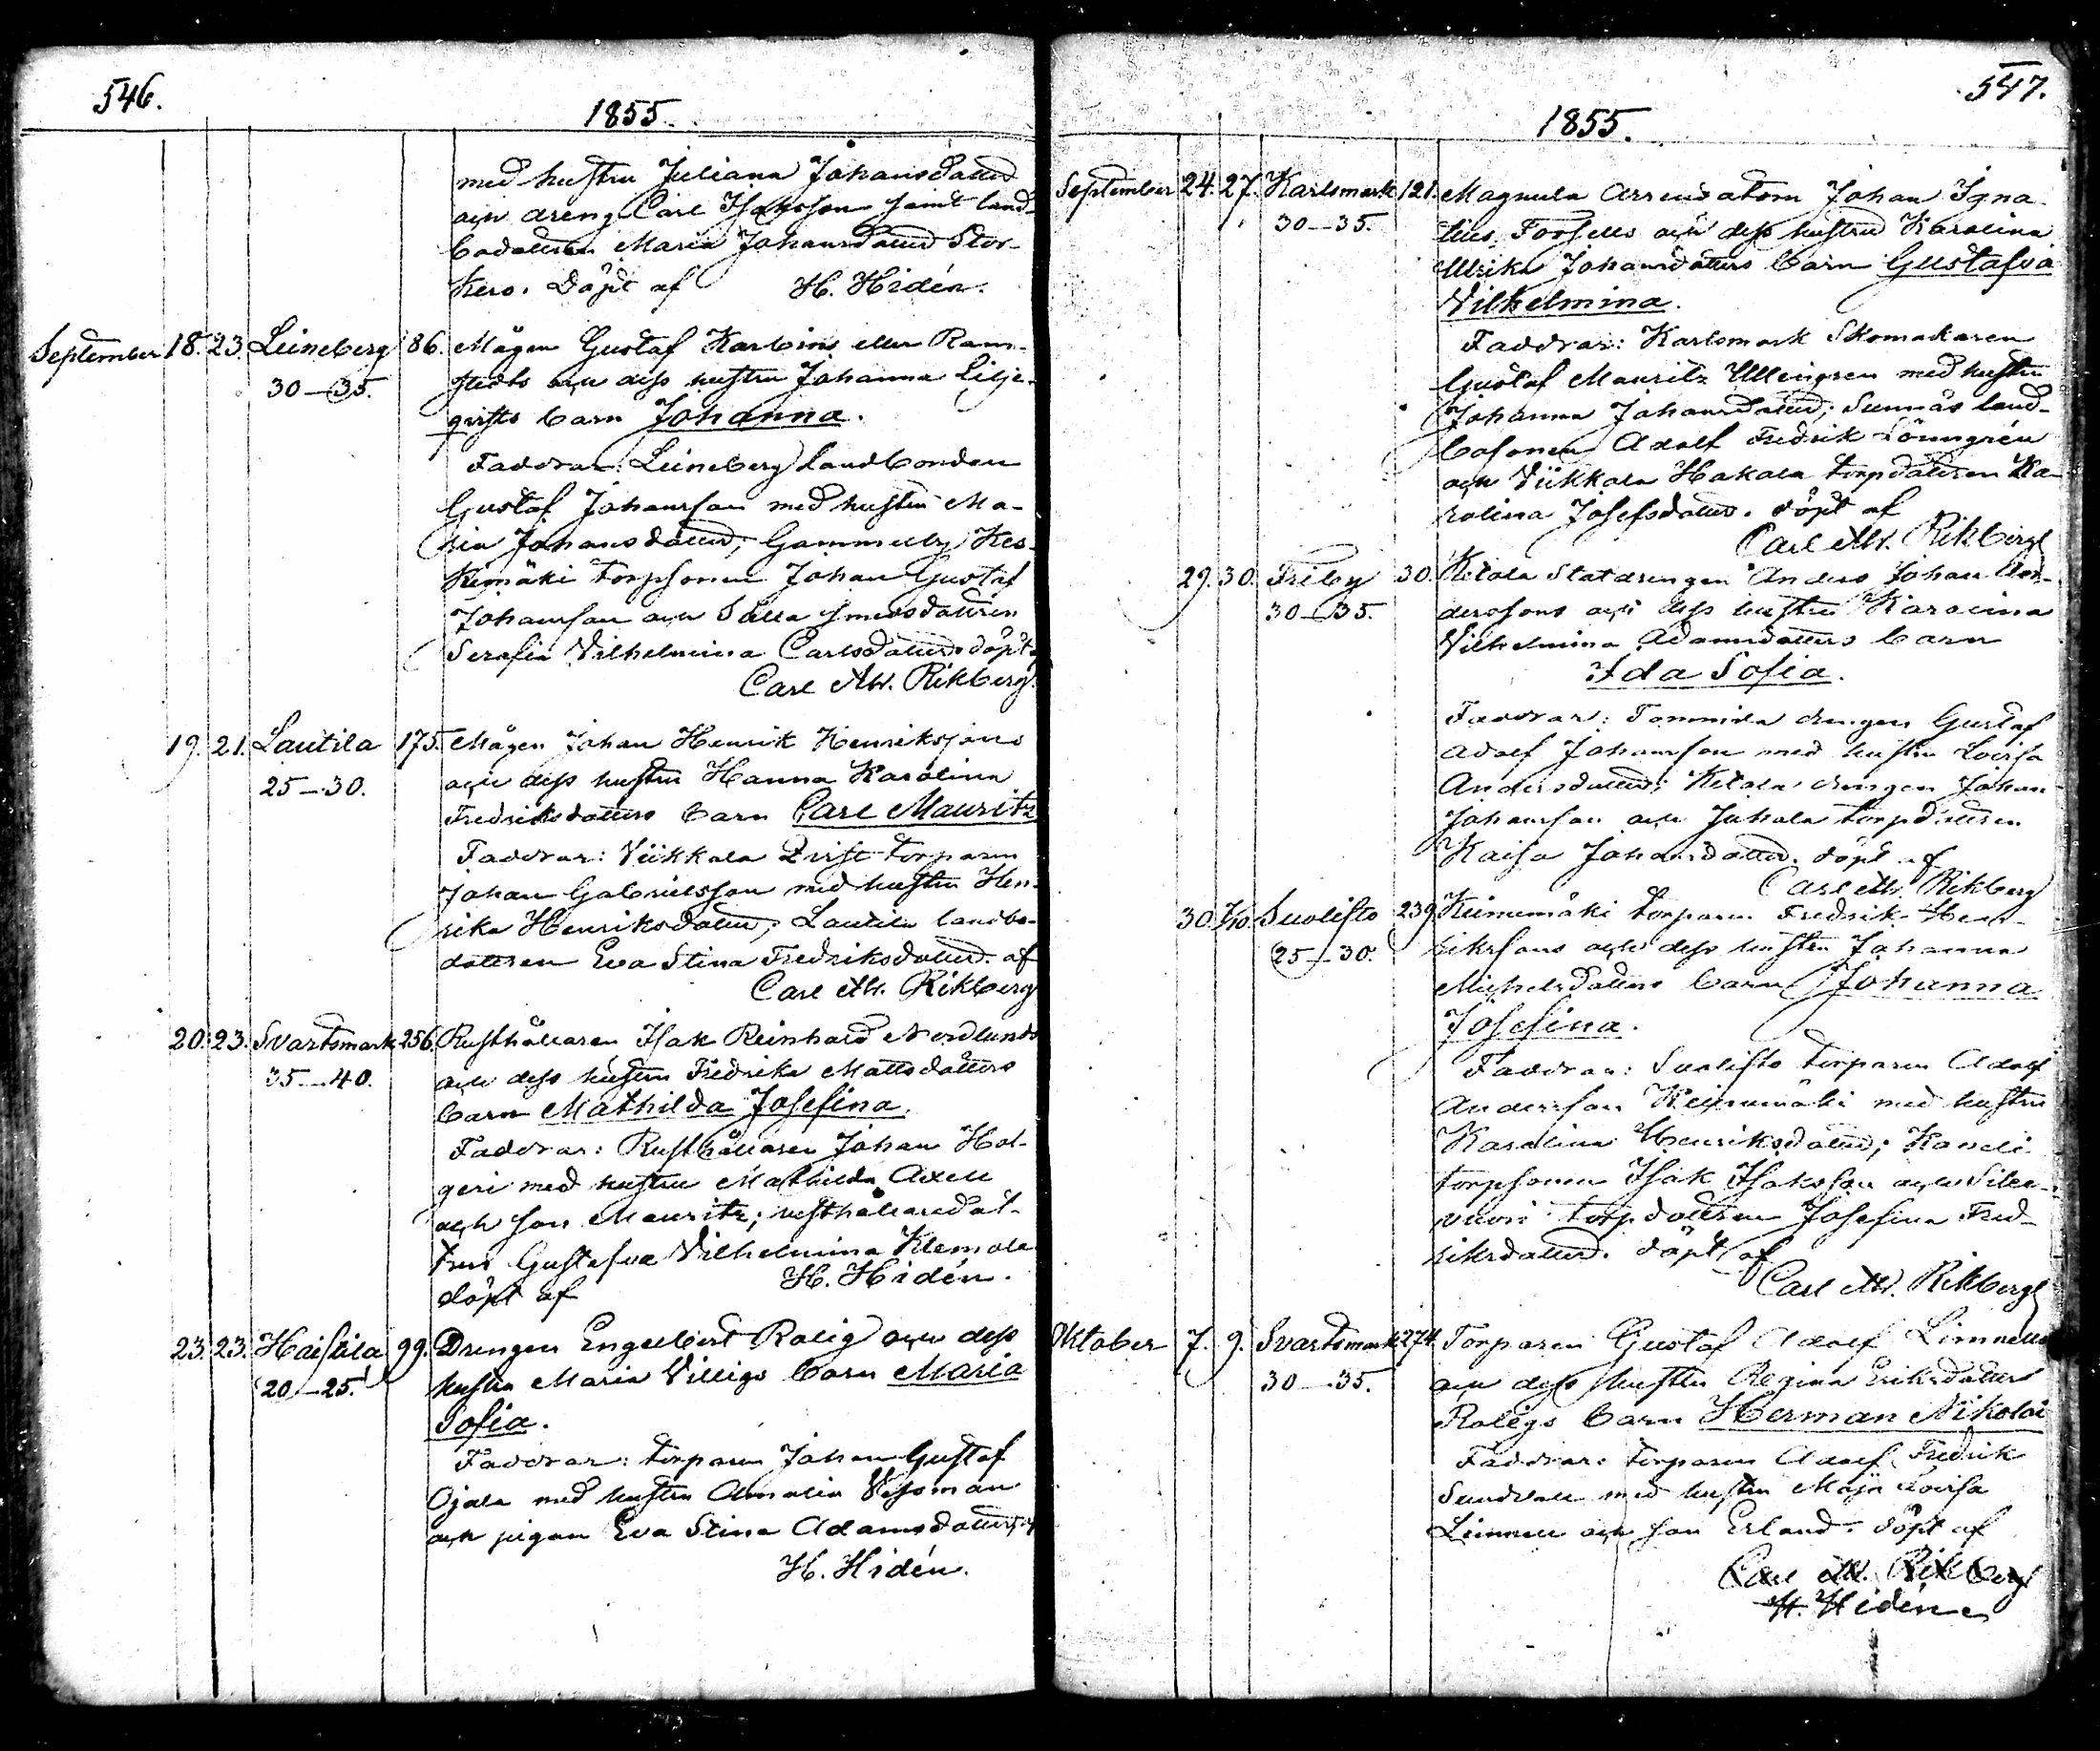 546.
1855.
med hustru Juliana Johansdotter
och dreng Carl Isaksson samt land-
bodottren Maria Johansdotter Stor-
Kero. Döpt af H. Hidén.
September 18. 23. Leineberg 86. Mågen Gustaf Karbins eller Ram-
30–35. stedts och dess hustru Johanna Lilje-
qvists barn Johanna.
Faddrar: Leineberg landbonden
Gustaf Johansson med hustru Ma-
ria Johansdotter; Gammelby Kes-
kimäki torpsonen Johan Gustaf
Johansson och Salla smedsdottren
Serafia Vilhelmina Carlsdotter. döpt
Carl M. Rikberg
19. 21. Lautila 175. Mågen Johan Henrik Henrikssons
25–30. och dess hustru Hanna Karolina
Fredriksdotters barn Carl Mauritz
Faddrar: Viikkala torparen
Johan Gabrielsson med hustru Hen-
rika Henriksdotter; Lautila landbo-
dottren Eva Stina Fredriksdotter. af
Carl M. Rikberg
20. 23. Svartsmark 256. Rusthållaren Isak Reinhard Nordlunds
35–40. och dess hustru Fredrika Mattsdotters
barn Mathilda Josefina.
Faddrar: Rusthållaren Johan Hol-
geri med hustru Mathilda Axell
och son Mauritz; rusthållaredot-
tren Gustafva Vilhelmina Klemola
döpt af H. Hidén.
23. 23. Haistila 99. Drengen Engelbert Rolig och dess
20–25. hustru Maria Villigs barn Maria
Sofia.
Faddrar: torparen Johan Gustaf
Ojala med hustru Amalia Wessman
och pigan Eva Stina Adamsdotter, af
H. Hidén.
547.
1855.
September 24. 27. Karlsmark 121. Magnula Arrendatorn Johan Igna-
30–35. tius Forsells och dess hustru Karolina
Ulrika Johansdotters barn Gustafva
Vilhelmina.
Faddrar: Karlsmark Skomakaren
Gustaf Mauritz Ullengren med hustru
Johanna Johansdotter; Sunnäs land-
bosonen Adolf Fredrik Lönngrén
och Viikkala Hakala torpdottren Ka-
rolina Josefsdotter. döpt af
Carl M. Rikberg
29. 30. Friby 30. Ketola Statdrengen Anders Johan An-
30–35. derssons och dess hustru Karolina
Vilhelmina Adamsdotters barn
Ida Sofia.
Faddrar: Tommila drengen Gustaf
Adolf Johansson med hustru Lovisa
Andersdotter; Ketola drengen Johan
Johansson och Juhola torpdottren
Kaisa Johansdotter. döpt af
Carl M. Rikberg
30. 1/10. Suolisto 239. Keinumäki torparen Fredrik Hen-
25–30. rikssons och dess hustru Johanna
Michelsdotters barn Johanna
Josefina.
Faddrar: Suolisto torparen Adolf
Andersson Keinumäki med hustru
Karolina Henriksdotter;
torpsonen Isak Isaksson och Sile-
vuori torpdottren Josefina Fred-
riksdotter. döpt af
Carl M. Rikberg
Oktober 7. 9. Svartsmark 274. Torparen Gustaf Adolf Limnells
30–35. och dess hustru Regina Eriksdotter
Roligs barn Herman Nikolai
Faddrar: torparen Adolf Fredrik
Sundvall med hustru Maja Lovisa
Limnell och son Erland. döpt af
Carl M. Rikberg
H. Hidén